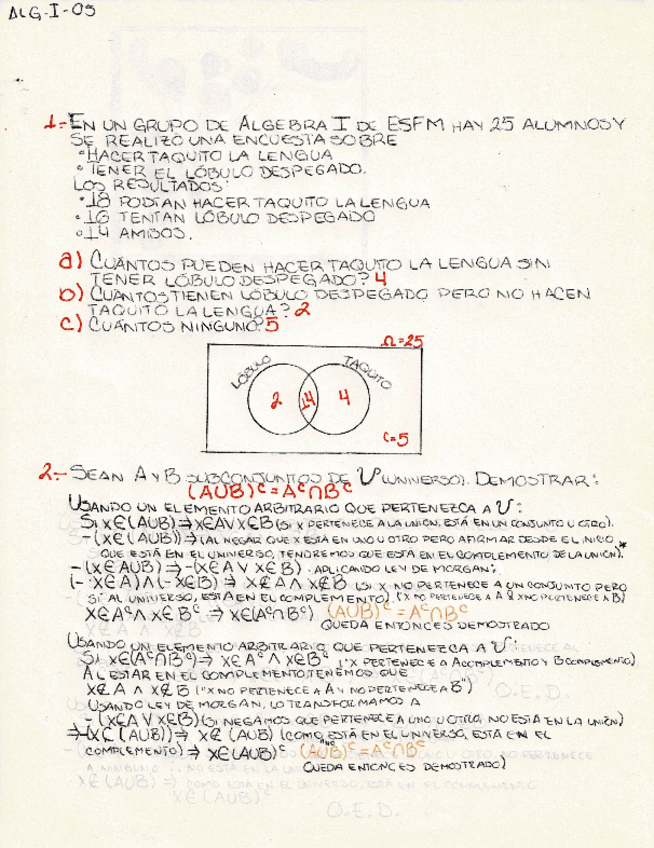 ALG-I-05
1.- EN UN GRUPO DE ALGEBRA I DE ESFM HAY 25 ALUMNOS Y
SE REALIZÓ UNA ENCUESTA SOBRE
• HACER TAQUITO LA LENGUA
• TENER EL LÓBULO DESPEGADO.
LOS RESULTADOS:
• 18 PODÍAN HACER TAQUITO LA LENGUA
• 16 TENÍAN LÓBULO DESPEGADO
• 14 AMBOS.
a) CUÁNTOS PUEDEN HACER TAQUITO LA LENGUA SIN
TENER LÓBULO DESPEGADO? 4
b) CUÁNTOS TIENEN LÓBULO DESPEGADO PERO NO HACEN
TAQUITO LA LENGUA? 2
c) CUÁNTOS NINGUNO? 5
Ω=25
LÓBULO TAQUITO
2 14 4
C=5
2.- SEAN A Y B SUBCONJUNTOS DE U (UNIVERSO). DEMOSTRAR:
(A∪B)ᶜ = Aᶜ∩Bᶜ
USANDO UN ELEMENTO ARBITRARIO QUE PERTENEZCA A U:
SI X∈(A∪B) ⇒ X∈A ∨ X∈B (SI X PERTENECE A LA UNIÓN, ESTÁ EN UN CONJUNTO U OTRO).
SI -(X∈(A∪B)) ⇒ (AL NEGAR QUE X ESTÁ EN UNO U OTRO PERO AFIRMAR DESDE EL INICIO
QUE ESTÁ EN EL UNIVERSO, TENDREMOS QUE ESTÁ EN EL COMPLEMENTO DE LA UNIÓN).*
-(X∈A∪B) ⇒ -(X∈A ∨ X∈B). APLICANDO LEY DE MORGAN:
(-X∈A) ∧ (-X∈B) ⇒ X∉A ∧ X∉B (SI X NO PERTENECE A UN CONJUNTO PERO
SÍ AL UNIVERSO, ESTÁ EN EL COMPLEMENTO) (X NO PERTENECE A A & X NO PERTENECE A B)
X∈Aᶜ ∧ X∈Bᶜ ⇒ X∈(Aᶜ∩Bᶜ) (A∪B)ᶜ = Aᶜ∩Bᶜ
QUEDA ENTONCES DEMOSTRADO
USANDO UN ELEMENTO ARBITRARIO QUE PERTENEZCA A U:
SI X∈(Aᶜ∩Bᶜ) ⇒ X∈Aᶜ ∧ X∈Bᶜ ("X PERTENECE A A COMPLEMENTO Y B COMPLEMENTO)
AL ESTAR EN EL COMPLEMENTO, TENEMOS QUE
X∉A ∧ X∉B ("X NO PERTENECE A A Y NO PERTENECE A B")
USANDO LEY DE MORGAN, LO TRANSFORMAMOS A
-(X∈A ∨ X∈B) (SI NEGAMOS QUE PERTENECE A UNO U OTRO, NO ESTÁ EN LA UNIÓN)
⇒ -(X∈(A∪B)) ⇒ X∉(A∪B) (COMO ESTÁ EN EL UNIVERSO, ESTÁ EN EL
COMPLEMENTO) ⇒ X∈(A∪B)ᶜ (A∪B)ᶜ = Aᶜ∩Bᶜ
QUEDA ENTONCES DEMOSTRADO)